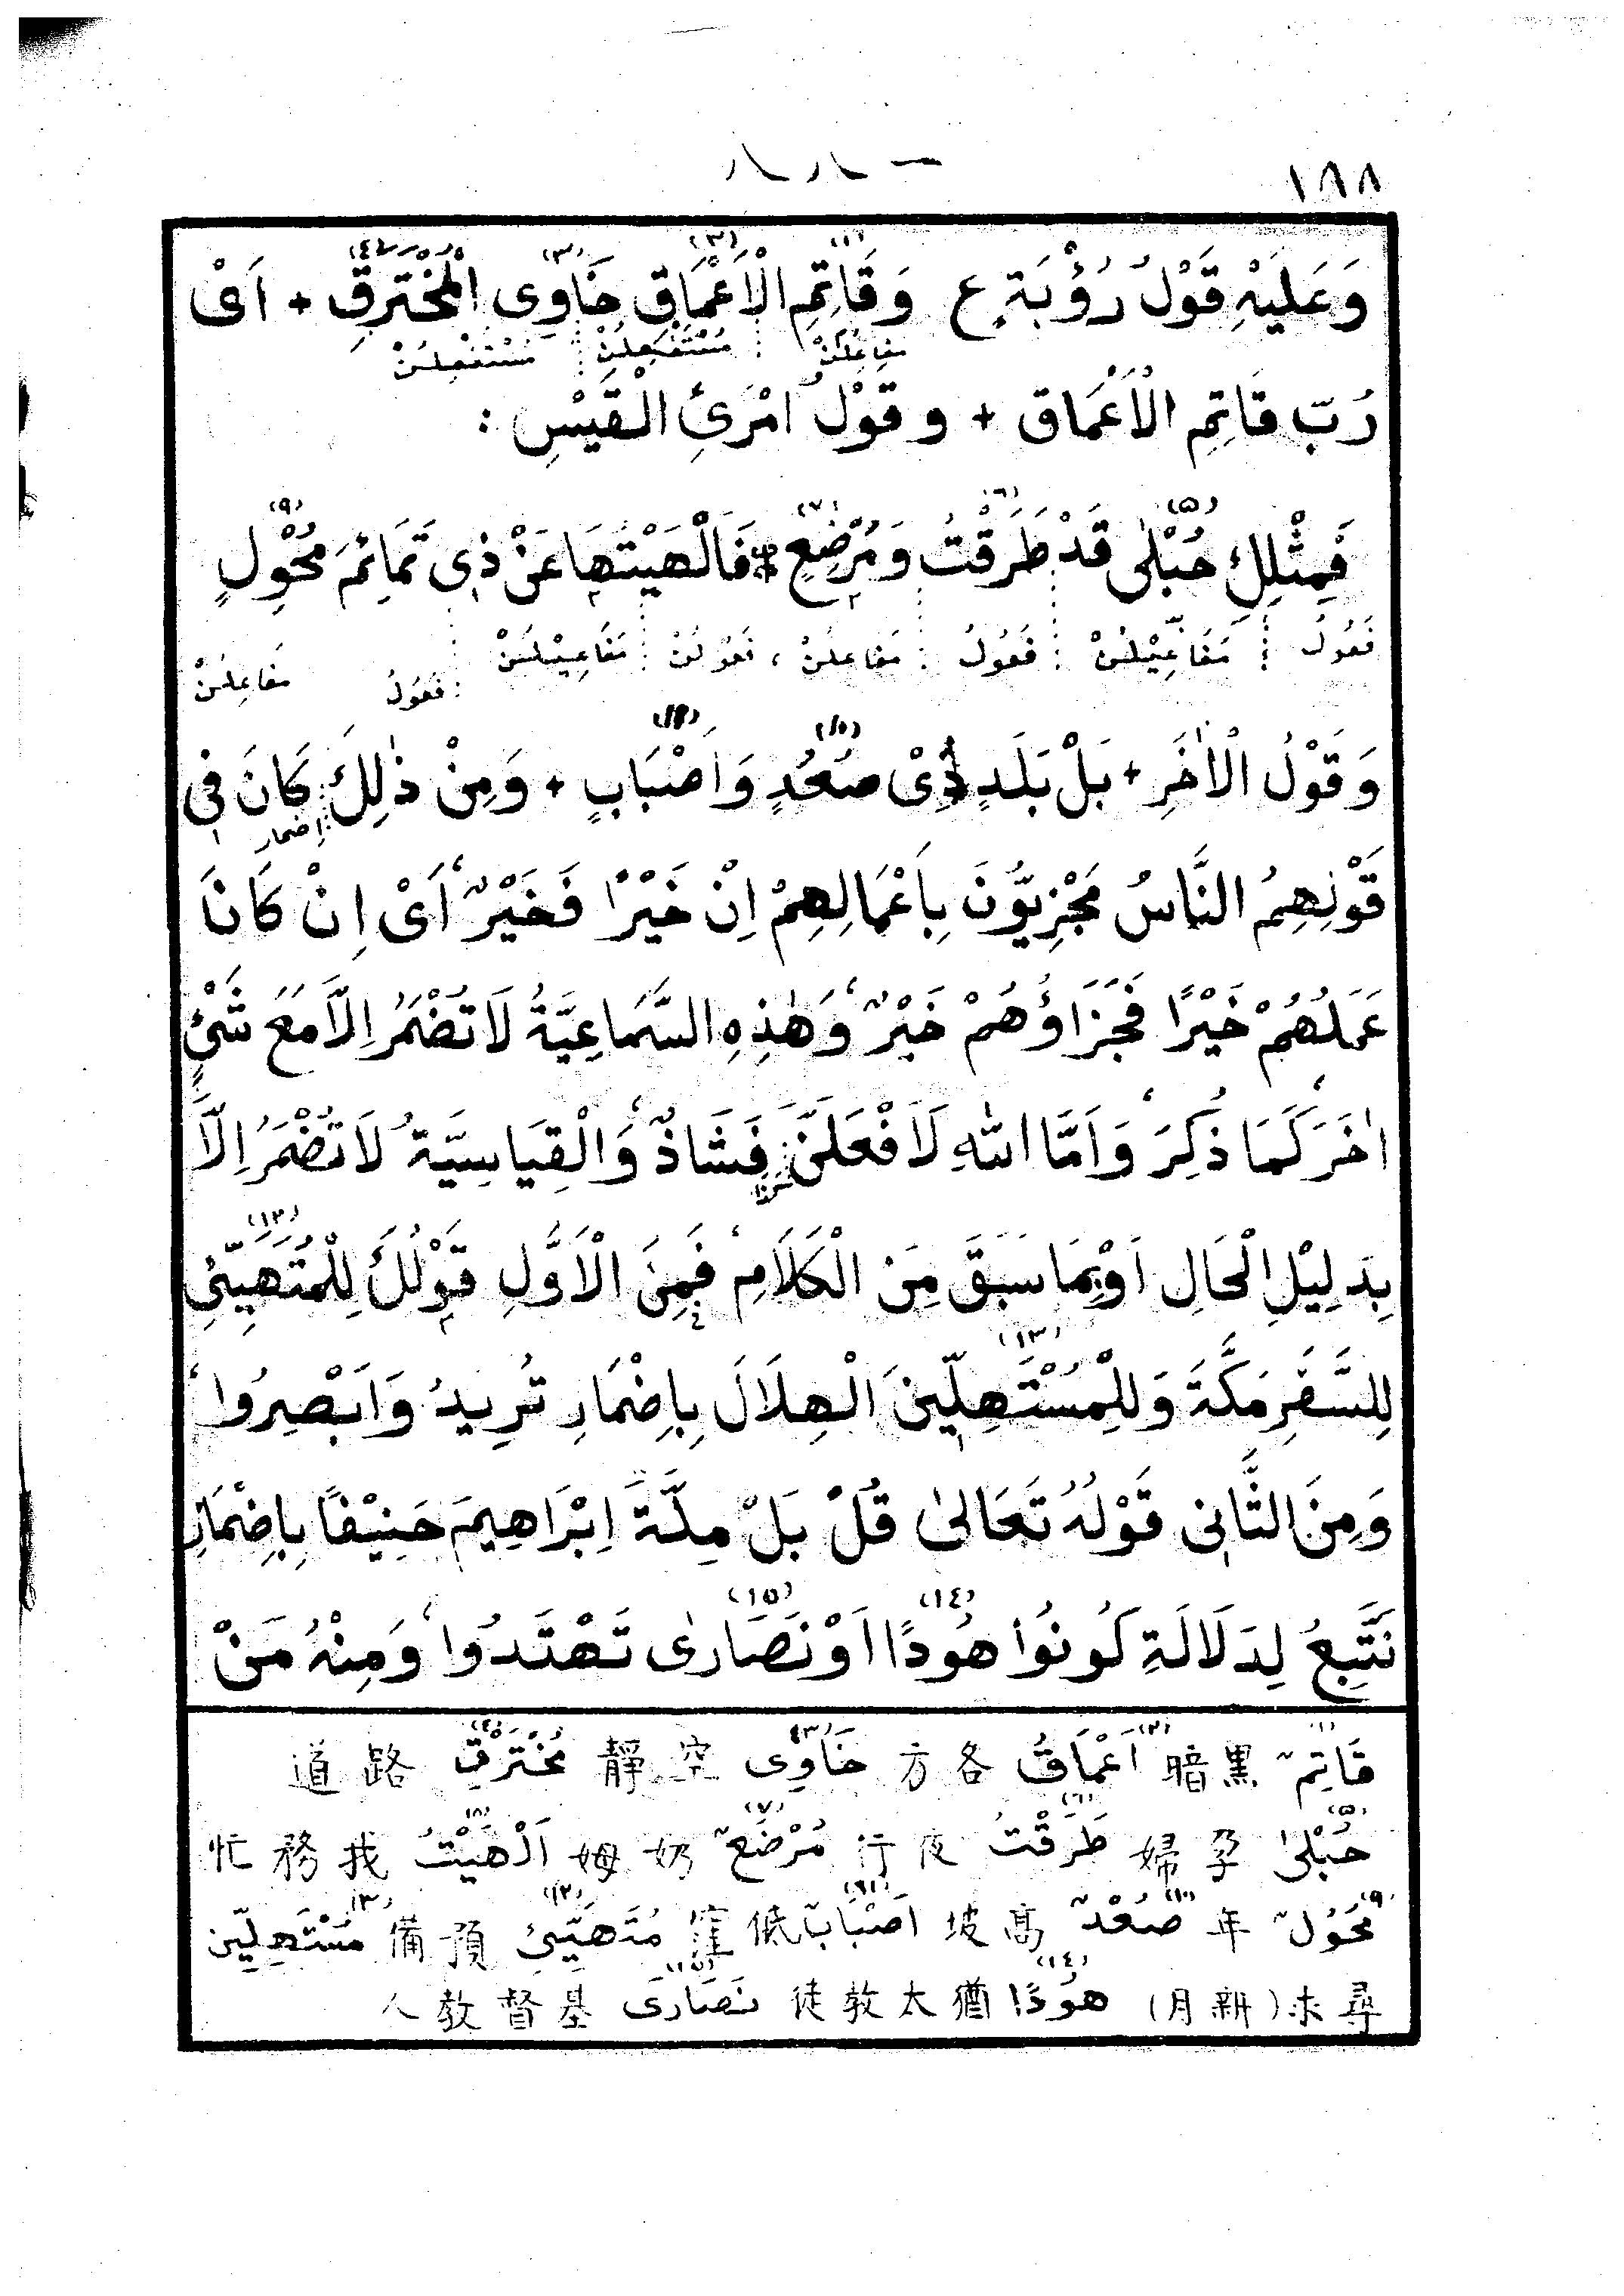 ١٨٨
وَعَلَيْهِ قَوْلُ رُؤْبَةَ ع وَقَاتِمِ الْأَعْمَاقِ خَاوِى الْمُخْتَرِقِ + اَىْ
مفاعلن مُسْتَفْعِلُنْ مُسْتَفْعِلُنْ
رُبَّ قَاتِمِ الْأَعْمَاقِ + و قَوْلُ امْرَئِ الْقَيْسِ :
فَمِثْلِكِ حُبْلٰى قَدْ طَرَقْتُ وَمُرْضِعٍ + فَاَلْهَيْتُهَا عَنْ ذِى تَمَائِمَ مُحْوِلٍ
فَعُولُ مَفَاعِيْلُنْ فَعُولُ مفاعلن ، فعولن مَفَاعِيْلُنْ فعولُ مفاعِلُنْ
وَقَوْلُ الْاٰخَرِ + بَلْ بَلَدٍ ذِىْ صُعُدٍ وَاَصْبَابٍ + وَمِنْ ذٰلِكَ كَانَ فِى
اضمار
قَوْلِهِمُ النَّاسُ مَجْزِيُّونَ بِاَعْمَالِهِمْ اِنْ خَيْرًا فَخَيْرٌ ، اَىْ اِنْ كَانَ
عَمَلُهُمْ خَيْرًا فَجَزَاؤُهُمْ خَيْرٌ ، وَهٰذِهِ السَّمَاعِيَّةُ لَا تُضْمَرُ اِلَّا مَعَ شَئٍ
اٰخَرَ كَمَا ذُكِرَ ، وَاَمَّا اللهِ لَاَفْعَلَنَّ فَشَاذٌّ ، وَالْقِيَاسِيَّةُ لَا تُضْمَرُ اِلَّا
بِدَلِيْلِ الْحَالِ اَوْ بِمَا سَبَقَ مِنَ الْكَلَامِ ، فَمِنَ الْاَوَّلِ قَوْلُكَ لِلْمُتَهَيِّئِ
لِلسَّفَرِ مَكَّةَ وَلِلْمُسْتَهِلِّينَ الْهِلَالَ بِاِضْمَارِ تُرِيدُ وَاَبْصِرُوا ،
وَمِنَ الثَّانِى قَوْلُهُ تَعَالىٰ قُلْ بَلْ مِلَّةَ اِبْرَاهِيمَ حَنِيْفًا بِاِضْمَارِ
نَتَّبِعُ لِدَلَالَةِ كُونُوا هُودًا اَوْ نَصَارىٰ تَهْتَدُوا ، وَمِنْهُ مَنْ
(١) قَاتِمٌ 黑暗 (٢) اَعْمَاقُ 各方 (٣) خَاوِى 空靜 (٤) مُخْتَرَقٌ 路道
(٥) حُبْلىٰ 孕婦 (٦) طَرَقْتُ 夜行 (٧) مُرْضِعٌ 奶姆 (٨) اَلْهَيْتُ 我務忙
(٩) مُحْوِلٌ 年 (١٠) صُعُدٌ 高坡 (١١) اَصْبَابٌ 低窪 (١٢) مُتَهَيِّئ 預備 (١٣) مُسْتَهِلِّين
尋求(新月) (١٤) هُودًا 猶太教徒 (١٥) نَصَارَى 基督教人